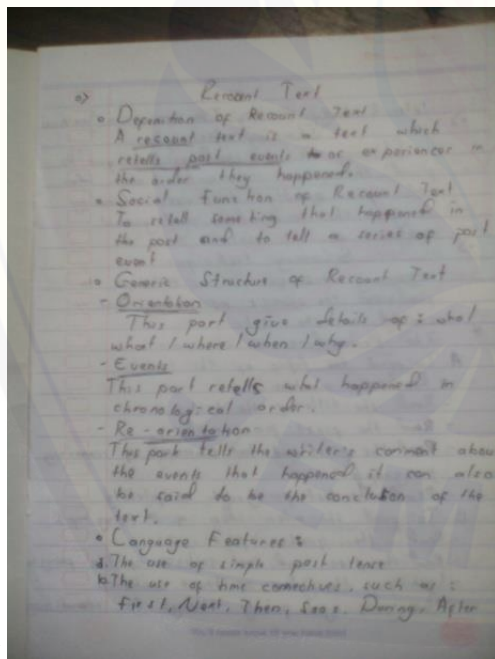 Recount Text
• Definition of Recount Text
A recount text is a text which
retells past events or experiences in
the order they happened.
• Social Function of Recount Text
To retell something that happened in
the past and to tell a series of past
event
• Generic Structure of Recount Text
- Orientation
This part give details of : who/
what / where / when / why.
- Events
This part retells what happened in
chronological order.
- Re-orientation
This part tells the writer's coment about
the events that happened it can also
be said to be the conclusion of the
text.
• Language Features :
a. The use of simple past tense
b. The use of time connectives, such as :
First, Next, Then, Soon, During, After